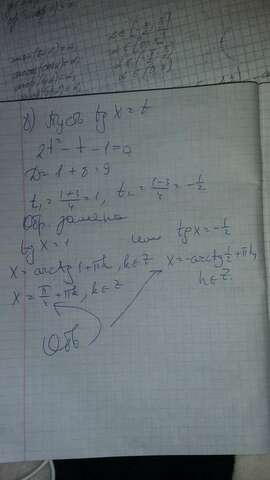 б) Пусть tg x = t
2t² - t - 1 = 0
D = 1 + 8 = 9
t₁ = (1+3)/4 = 1, t₂ = (1-3)/4 = -1/2
Обр. замена
tg x = 1 или tg x = -1/2
x = arctg 1 + πk, k ∈ Z
x = -arctg 1/2 + πk, k ∈ Z.
x = π/4 + πk, k ∈ Z
Отв